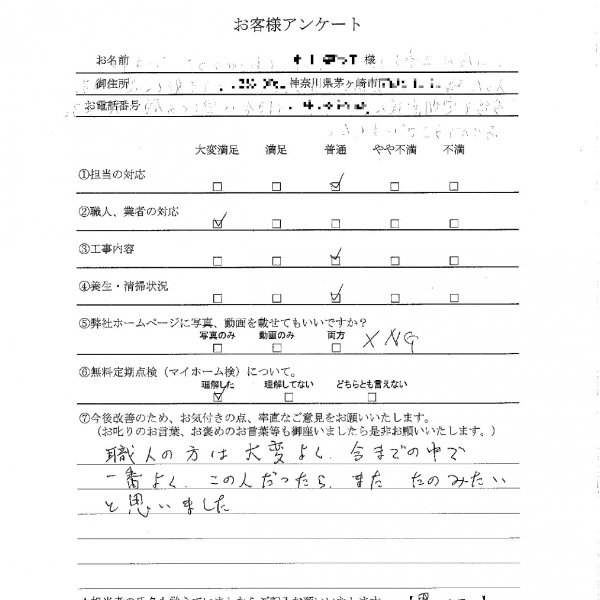 お客様アンケート
お名前 様
御住所 神奈川県茅ヶ崎市
お電話番号
大変満足 満足 普通 やや不満 不満
①担当の対応 □ □ ☑ □ □
②職人、業者の対応 ☑ □ □ □ □
③工事内容 □ □ ☑ □ □
④養生・清掃状況 □ □ ☑ □ □
⑤弊社ホームページに写真、動画を載せてもいいですか？
写真のみ 動画のみ 両方
□ □ □ × NG
⑥無料定期点検（マイホーム検）について。
理解した 理解してない どちらとも言えない
☑ □ □
⑦今後改善のため、お気付きの点、率直なご意見をお願いいたします。
（お叱りのお言葉、お褒めのお言葉等も御座いましたら是非お願いいたします。）
職人の方は大変よく、今までの中で
一番よく、この人だったら、また たのみたい
と思いました